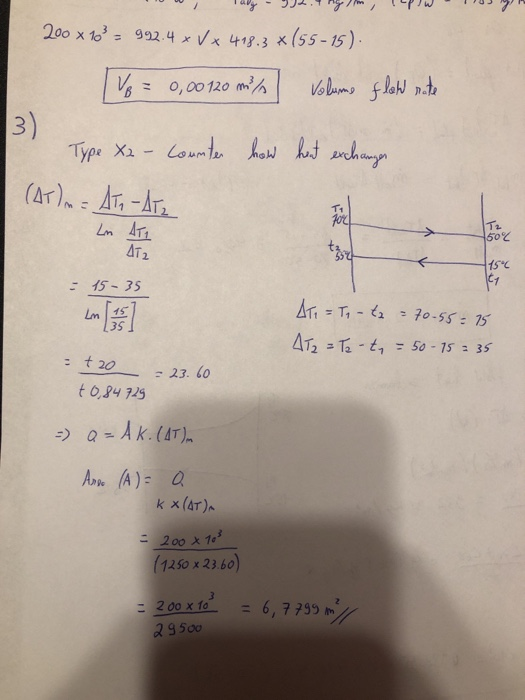 200 x 10³ = 992.4 x V x 418.3 x (55-15).
V_B = 0,00120 m³/s Volume flow rate
3)
Type X2 - Counter how het exchanger
(ΔT)m = ΔT₁ - ΔT₂
Ln ΔT₁
ΔT₂
T₁
70°C
T₂
50°C
t₂
55°C
15°C
t₁
= 15 - 35
Ln [15
35]
ΔT₁ = T₁ - t₂ = 70-55 = 15
ΔT₂ = T₂ - t₁ = 50 - 15 = 35
= + 20 = 23.60
+ 0,84729
=> Q = A k. (ΔT)m
Area (A) = Q
K x (ΔT)m
= 200 x 10³
(1250 x 23.60)
= 200 x 10³ = 6,7799 m²//
29500